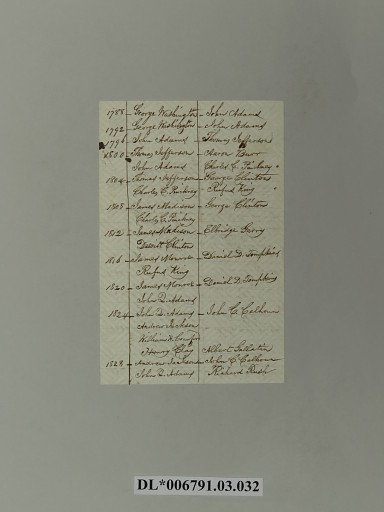 1788 - George Washington - John Adams
1792 - George Washington - John Adams
1796 - John Adams - Thomas Jefferson
1800 - Thomas Jefferson - Aaron Burr
John Adams Charles C. Pinkney
1804 - Thomas Jefferson - George Clinton
Charles C. Pinckney Rufus King
1808 - James Madison - George Clinton
Charles C. Pinckney
1812 - James Madison - Elbridge Gerry
Dewitt Clinton
1816 - James Monroe - Daniel D. Tompkins
Rufus King
1820 - James Monroe - Daniel D. Tompkins
John Q. Adams
1824 - John Q. Adams - John C. Calhoun
Andrew Jackson
William H. Crawford
Henry Clay Albert Gallatin
1828 - Andrew Jackson - John C. Calhoun
John Q. Adams Richard Rush
DL*006791.03.032